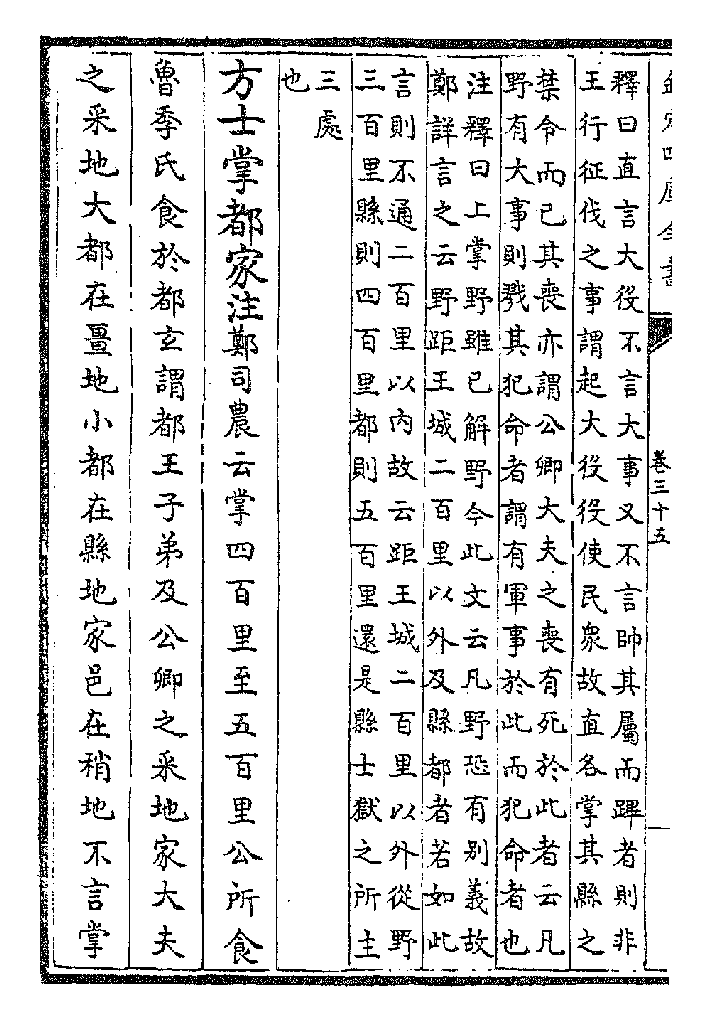 欽定四庫全書
卷三十五
釋曰直言大役不言大事又不言帥其屬而蹕者則非
王行征伐之事謂起大役役使民衆故直各掌其縣之
禁令而已其喪亦謂公卿大夫之喪有死於此者云凡
野有大事則戮其犯命者謂有軍事於此而犯命者也
注釋曰上掌野雖已解野今此文云凡野恐有别義故
鄭詳言之云野距王城二百里以外及縣都者若如此
言則不通二百里以内故云距王城二百里以外從野
三百里縣則四百里都則五百里還是縣士獄之所主
三處
也
方士掌都家注鄭司農云掌四百里至五百里公所食
魯季氏食於都玄謂都王子弟及公卿之采地家大夫
之采地大都在畺地小都在縣地家邑在稍地不言掌